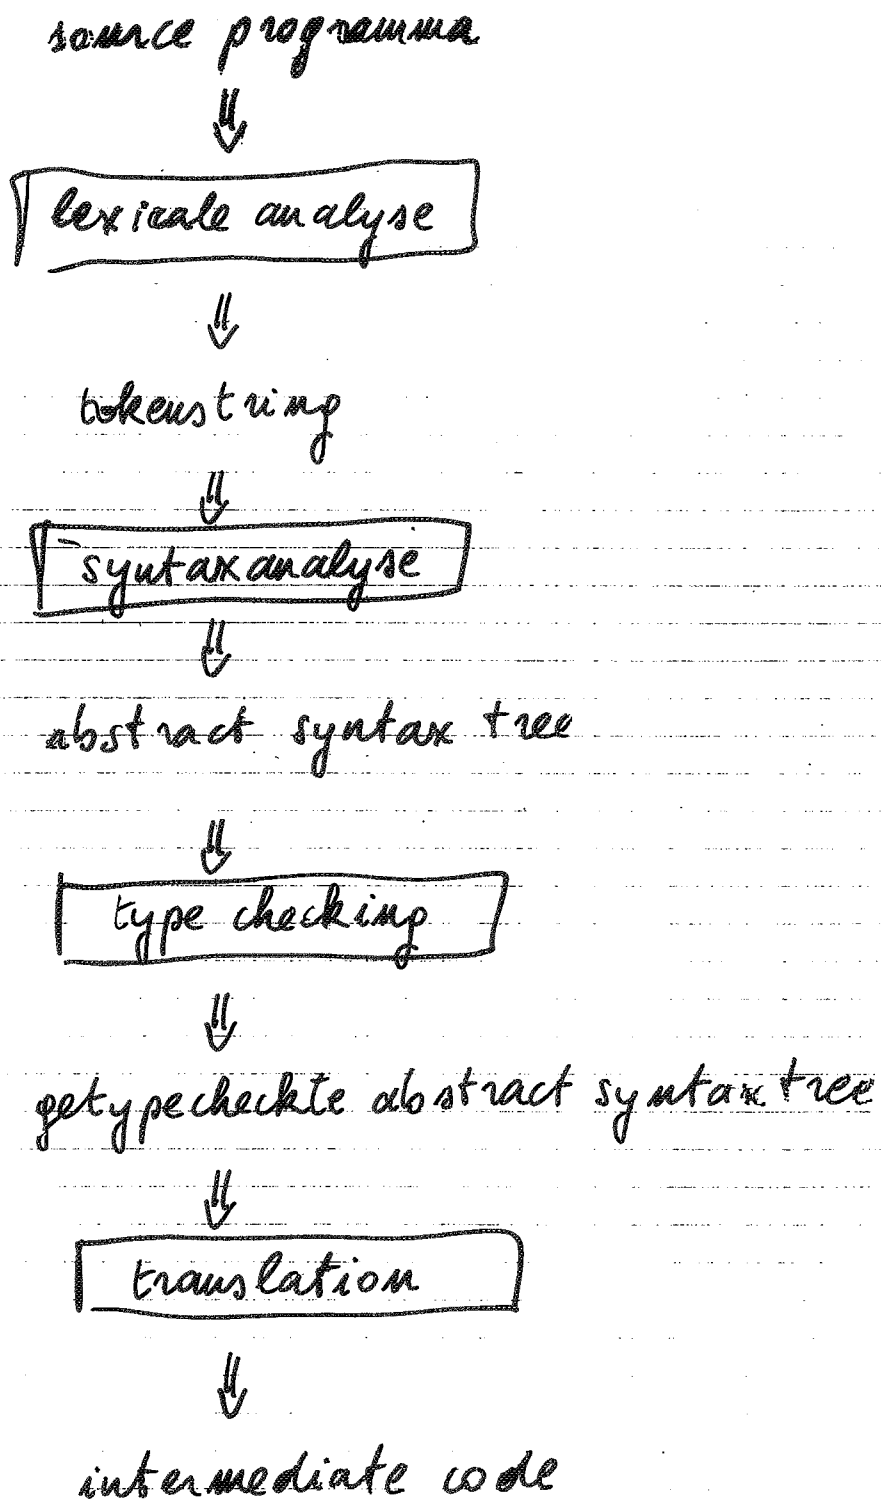 source programma
lexicale analyse
tokenstring
syntaxanalyse
abstract syntax tree
type checking
getypecheckte abstract syntax tree
translation
intermediate code